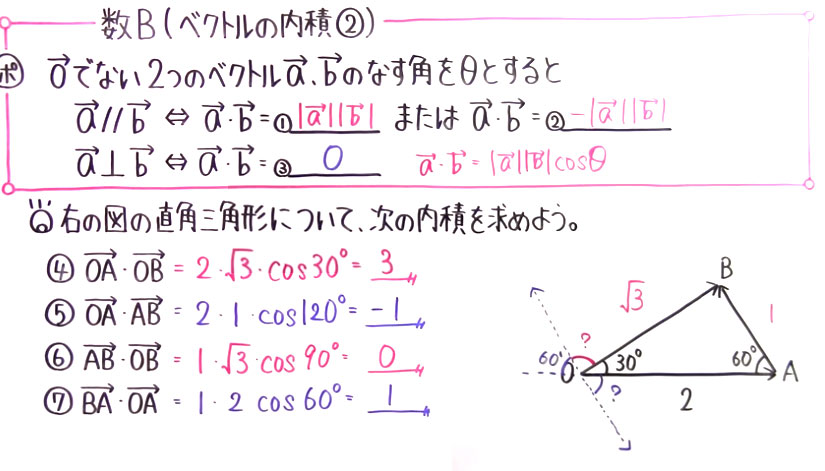 数B(ベクトルの内積②)
ポ 0でない2つのベクトルa、bのなす角をθとすると
a // b ⇔ a・b = ① |a||b| または a・b = ② −|a||b|
a ⊥ b ⇔ a・b = ③ 0 a・b = |a||b|cosθ
右の図の直角三角形について、次の内積を求めよう。
④ OA・OB = 2・√3・cos30° = 3
⑤ OA・AB = 2・1・cos120° = −1
⑥ AB・OB = 1・√3・cos90° = 0
⑦ BA・OA = 1・2 cos60° = 1
B
√3
1
?
60°
O
30°
60°
A
?
2